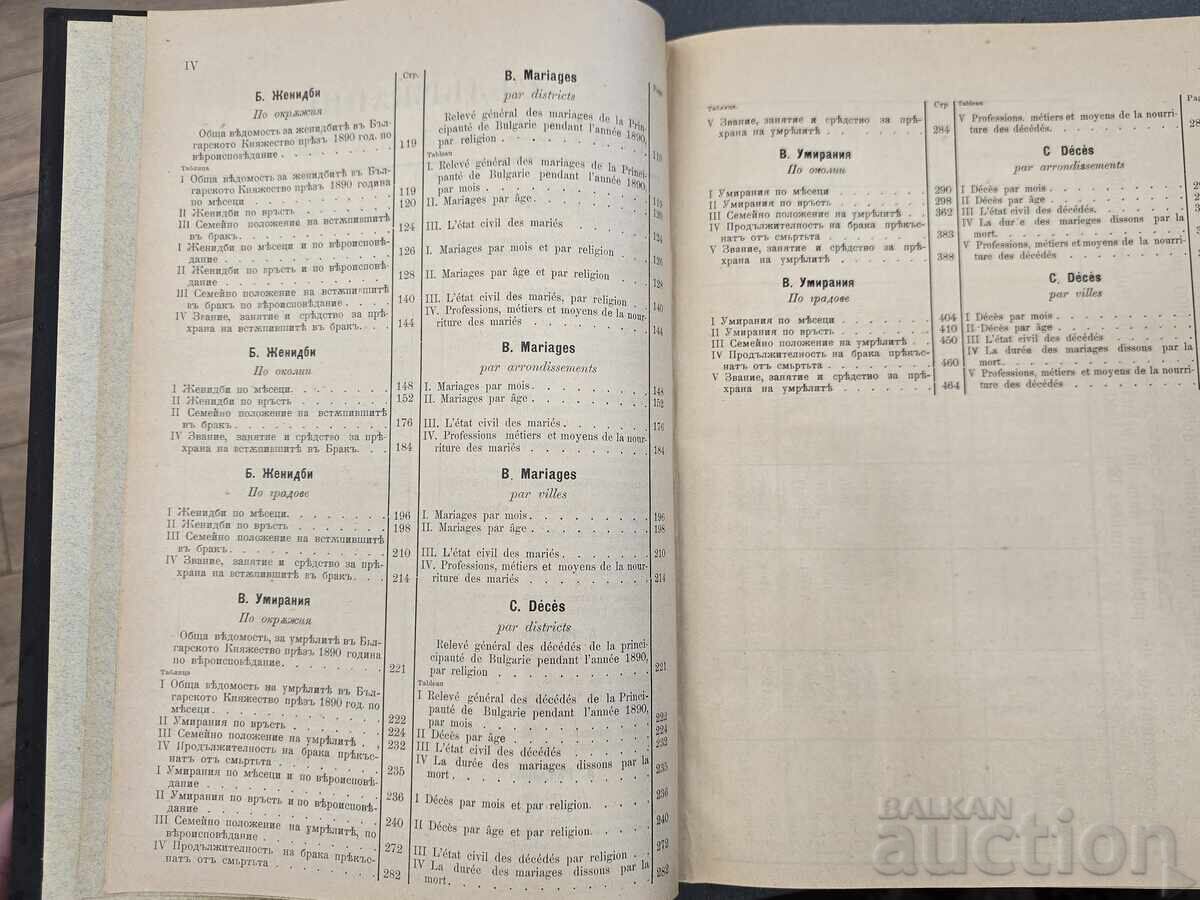 IV
Стр.
Б. Женидби
По окрѫжия
Обща вѣдомость за женидбитѣ въ Бъл-
гарското Княжество прѣзъ 1890 год. по
вѣроисповѣдание. 119
Таблица
I Обща вѣдомость за женидбитѣ въ Бъл-
гарското Княжество прѣзъ 1890 година
по мѣсеци 119
II Женидби по врѣсть 120
III Семейно положение на встѫпившитѣ
въ бракъ. 124
I Женидби по мѣсеци и по вѣроисповѣ-
дание 126
II Женидби по врѣсть и по вѣроисповѣ-
дание 128
III Семейно положение на встѫпившитѣ
въ бракъ по вѣроисповѣдание 140
IV Звание, занятие и срѣдство за прѣ-
храна на встѫпившитѣ въ бракъ. 144
Б. Женидби
По околии
I Женидби по мѣсеци. 148
II Женидби по врѣсть 152
II Семейно положение на встѫпившитѣ
въ бракъ 176
IV Звание, занятие и срѣдство за прѣ-
храна на встѫпившитѣ въ Бракъ. 184
Б. Женидби
По градове
I Женидби по мѣсеци. 196
II Женидби по врѣсть 198
III Семейно положение на встѫпившитѣ
въ бракъ 210
IV Звание, занятие и срѣдство за прѣ-
храна на встѫпившитѣ въ бракъ. 214
В. Умирания
По окрѫжия
Обща вѣдомость, за умрѣлитѣ въ Бъл-
гарското Княжество прѣзъ 1890 година
по вѣроисповѣдание. 221
Таблица
I Обща вѣдомость на умрѣлитѣ въ Бъл-
гарското Княжество прѣзъ 1890 год. по
мѣсеци. 222
II Умирания по врѣсть 224
III Семейно положение на умрѣлитѣ 232
IV Продължителность на брака прѣкъс-
натъ отъ смъртьта 235
I Умирания по мѣсеци и по вѣроисповѣ-
дание 236
II Умирания по врѣсть и по вѣроисповѣ-
дание 240
III Семейно положение на умрѣлитѣ, по
вѣроисповѣдание 272
IV Продължителность на брака прѣкъс-
натъ отъ смъртьта 282
B. Mariages
par districts
Relevé général des mariages de la Prin-
cipauté de Bulgarie pendant l'année 1890,
par religion 119
Tableau
I. Relevé général des mariages de la Princi-
pauté de Bulgarie pendant l'année 1890,
par mois 119
II. Mariages par âge 120
III. L'état civil des mariés 124
I. Mariages par mois et par religion 126
II. Mariages par âge et par religion 128
III. L'état civil des mariés, par religion 140
IV. Professions, métiers et moyens de la nour-
riture des mariés 144
B. Mariages
par arrondissements
I. Mariages par mois. 148
II. Mariages par âge 152
III. L'état civil des mariés. 176
IV. Professions métiers et moyens de la nour-
riture des mariés 184
B. Mariages
par villes
I. Mariages par mois. 196
II. Mariages par âge 198
III. L'état civil des mariés. 210
IV. Professions, métiers et moyens de la nour-
riture des mariés 214
C. Décès
par districts
Relevé général des décédés de la princi-
pauté de Bulgarie pendant l'année 1890,
par religion 221
Tableau
I Relevé général des décédés de la Princi-
pauté de Bulgarie pendant l'année 1890,
par mois 222
II Décès par âge 224
III L'état civil des décédés 232
IV La durée des mariages dissons par la
mort 235
I Décès par mois et par religion. 236
II Décès par âge et par religion. 240
III L'état civil des décédés par religion 272
IV La durée des mariages dissons par la
mort. 282
Таблица
Стр
V Звание, занятие и срѣдство за прѣ-
храна на умрѣлитѣ 284
В. Умирания
По околии
I Умирания по мѣсеци 290
II Умирания по врѣсть 298
III Семейно положение на умрѣлитѣ 362
IV Продължителность на брака прѣкъс-
натъ отъ смъртьта 383
V Звание, занятие и срѣдство за прѣ-
храна на умрѣлитѣ 388
В. Умирания
По градове
I Умирания по мѣсеци 404
II Умирания по врѣсть 410
III Семейно положение на умрѣлитѣ 450
IV Продължителность на брака прѣкъс-
натъ отъ смъртьта 460
V Звание, занятие и срѣдство за прѣ-
храна на умрѣлитѣ 464
Tableau
V Professions, métiers et moyens de la nourri-
ture des décédés.
C Décès
par arrondissements
I Décès par mois
II Décès par âge
III L'état civil des décédés.
IV La dur e des mariages dissons par la
mort.
V Professions, métiers et moyens de la nourri-
ture des décédés
C. Décès
par villes
I Décès par mois
II Décès par âge
III L'état civil des décédés
IV La durée des mariages dissons par la
mort
V Professions, métiers et moyens de la nourri-
ture des décédés
BALKAN
auction